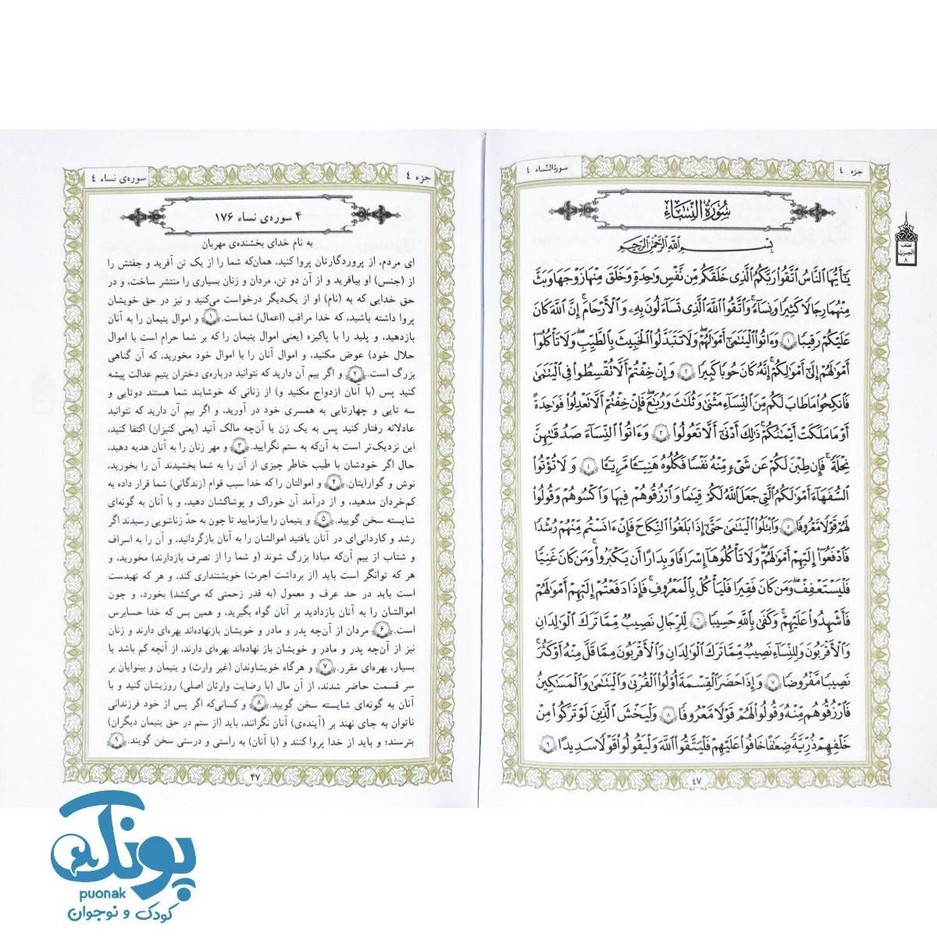 جزء ٤
سورة النساء ٤
سُورَةُ النِّسَاءِ
بِسْمِ اللَّهِ الرَّحْمَٰنِ الرَّحِيمِ
يَٰٓأَيُّهَا النَّاسُ اتَّقُوا رَبَّكُمُ الَّذِى خَلَقَكُم مِّن نَّفْسٍ وَٰحِدَةٍ وَخَلَقَ مِنْهَا زَوْجَهَا وَبَثَّ
مِنْهُمَا رِجَالًا كَثِيرًا وَنِسَآءً ۚ وَاتَّقُوا اللَّهَ الَّذِى تَسَآءَلُونَ بِهِۦ وَالْأَرْحَامَ ۚ إِنَّ اللَّهَ كَانَ
عَلَيْكُمْ رَقِيبًا ۝١ وَءَاتُوا الْيَتَٰمَىٰٓ أَمْوَٰلَهُمْ ۖ وَلَا تَتَبَدَّلُوا الْخَبِيثَ بِالطَّيِّبِ ۖ وَلَا تَأْكُلُوٓا
أَمْوَٰلَهُمْ إِلَىٰٓ أَمْوَٰلِكُمْ ۚ إِنَّهُۥ كَانَ حُوبًا كَبِيرًا ۝٢ وَإِنْ خِفْتُمْ أَلَّا تُقْسِطُوا فِى الْيَتَٰمَىٰ
فَانكِحُوا مَا طَابَ لَكُم مِّنَ النِّسَآءِ مَثْنَىٰ وَثُلَٰثَ وَرُبَٰعَ ۖ فَإِنْ خِفْتُمْ أَلَّا تَعْدِلُوا فَوَٰحِدَةً
أَوْ مَا مَلَكَتْ أَيْمَٰنُكُمْ ۚ ذَٰلِكَ أَدْنَىٰٓ أَلَّا تَعُولُوا ۝٣ وَءَاتُوا النِّسَآءَ صَدُقَٰتِهِنَّ
نِحْلَةً ۚ فَإِن طِبْنَ لَكُمْ عَن شَىْءٍ مِّنْهُ نَفْسًا فَكُلُوهُ هَنِيٓـًٔا مَّرِيٓـًٔا ۝٤ وَلَا تُؤْتُوا
السُّفَهَآءَ أَمْوَٰلَكُمُ الَّتِى جَعَلَ اللَّهُ لَكُمْ قِيَٰمًا وَارْزُقُوهُمْ فِيهَا وَاكْسُوهُمْ وَقُولُوا
لَهُمْ قَوْلًا مَّعْرُوفًا ۝٥ وَابْتَلُوا الْيَتَٰمَىٰ حَتَّىٰٓ إِذَا بَلَغُوا النِّكَاحَ فَإِنْ ءَانَسْتُم مِّنْهُمْ رُشْدًا
فَادْفَعُوٓا إِلَيْهِمْ أَمْوَٰلَهُمْ ۖ وَلَا تَأْكُلُوهَآ إِسْرَافًا وَبِدَارًا أَن يَكْبَرُوا ۚ وَمَن كَانَ غَنِيًّا
فَلْيَسْتَعْفِفْ ۖ وَمَن كَانَ فَقِيرًا فَلْيَأْكُلْ بِالْمَعْرُوفِ ۚ فَإِذَا دَفَعْتُمْ إِلَيْهِمْ أَمْوَٰلَهُمْ
فَأَشْهِدُوا عَلَيْهِمْ ۚ وَكَفَىٰ بِاللَّهِ حَسِيبًا ۝٦ لِّلرِّجَالِ نَصِيبٌ مِّمَّا تَرَكَ الْوَٰلِدَانِ
وَالْأَقْرَبُونَ وَلِلنِّسَآءِ نَصِيبٌ مِّمَّا تَرَكَ الْوَٰلِدَانِ وَالْأَقْرَبُونَ مِمَّا قَلَّ مِنْهُ أَوْ كَثُرَ ۚ
نَصِيبًا مَّفْرُوضًا ۝٧ وَإِذَا حَضَرَ الْقِسْمَةَ أُولُوا الْقُرْبَىٰ وَالْيَتَٰمَىٰ وَالْمَسَٰكِينُ
فَارْزُقُوهُم مِّنْهُ وَقُولُوا لَهُمْ قَوْلًا مَّعْرُوفًا ۝٨ وَلْيَخْشَ الَّذِينَ لَوْ تَرَكُوا مِنْ
خَلْفِهِمْ ذُرِّيَّةً ضِعَٰفًا خَافُوا عَلَيْهِمْ فَلْيَتَّقُوا اللَّهَ وَلْيَقُولُوا قَوْلًا سَدِيدًا ۝٩
٤٧
نصف
الحزب
٨
جزء ٤
سوره‌ی نساء ٤
۴ سوره‌ی نساء ۱۷۶
به نام خدای بخشنده‌ی مهربان
ای مردم، از پروردگارتان پروا کنید، همان‌که شما را از یک تن آفرید و جفتش را
از (جنس) او بیافرید و از آن دو تن، مردان و زنان بسیاری را منتشر ساخت، و در
حق خدایی که به (نام) او از یک‌دیگر درخواست می‌کنید و نیز در حق خویشان
پروا داشته باشید، که خدا مراقب (اعمال) شماست. ۱ و اموال یتیمان را به آنان
بازدهید، و پلید را با پاکیزه (یعنی اموال یتیمان را که بر شما حرام است با اموال
حلال خود) عوض مکنید، و اموال آنان را با اموال خود مخورید، که آن گناهی
بزرگ است. ۲ و اگر بیم آن دارید که نتوانید درباره‌ی دختران یتیم عدالت پیشه
کنید پس (با آنان ازدواج مکنید و) از زنانی که خوشایند شما هستند دوتایی و
سه تایی و چهارتایی به همسری خود در آورید، و اگر بیم آن دارید که نتوانید
عادلانه رفتار کنید پس به یک زن یا آن‌چه مالک آنید (یعنی کنیزان) اکتفا کنید،
این نزدیک‌تر است به آن‌که به ستم نگرایید. ۳ و مهر زنان را به آنان هدیه دهید،
حال اگر خودشان با طیب خاطر چیزی از آن را به شما بخشیدند آن را بخورید،
نوش و گوارایتان. ۴ و اموالتان را که خدا سبب قوام (زندگانی) شما قرار داده به
کم‌خردان مدهید، و از درآمد آن خوراک و پوشاکشان دهید، و با آنان به گونه‌ای
شایسته سخن گویید. ۵ و یتیمان را بیازمایید تا چون به حدّ زناشویی رسیدند اگر
رشد و کاردانی‌ای در آنان یافتید اموالشان را به آنان بازگردانید، و آن را به اسراف
و شتاب از بیم آن‌که مبادا بزرگ شوند (و شما را از تصرف بازدارند) مخورید، و
هر که توانگر است باید (از برداشت اجرت) خویشتنداری کند، و هر که تهیدست
است باید در حد عرف و معمول (به قدر زحمتی که می‌کشد) بخورد، و چون
اموالشان را به آنان بازدادید بر آنان گواه بگیرید، و همین بس که خدا حسابرس
است. ۶ مردان از آن‌چه پدر و مادر و خویشان بازنهاده‌اند بهره‌ای دارند، و زنان
نیز از آن‌چه پدر و مادر و خویشان باز نهاده‌اند بهره‌ای دارند، از آنچه کم باشد یا
بسیار، بهره‌ای مقرر. ۷ و هرگاه خویشاوندان (غیر وارث) و یتیمان و بینوایان بر
سر قسمت حاضر شدند، از آن مال (با رضایت وارثان اصلی) روزیشان کنید و با
آنان به گونه‌ای شایسته سخن گویید. ۸ و کسانی‌که اگر پس از خود فرزندانی
ناتوان به جای نهند بر (آینده‌ی) آنان نگرانند، باید (از ستم در حق یتیمان دیگران)
بترسند؛ و باید از خدا پروا کنند و (با آنان) به راستی و درستی سخن گویند. ۹
۴۷
پونک
puonak
کودک و نوجوان